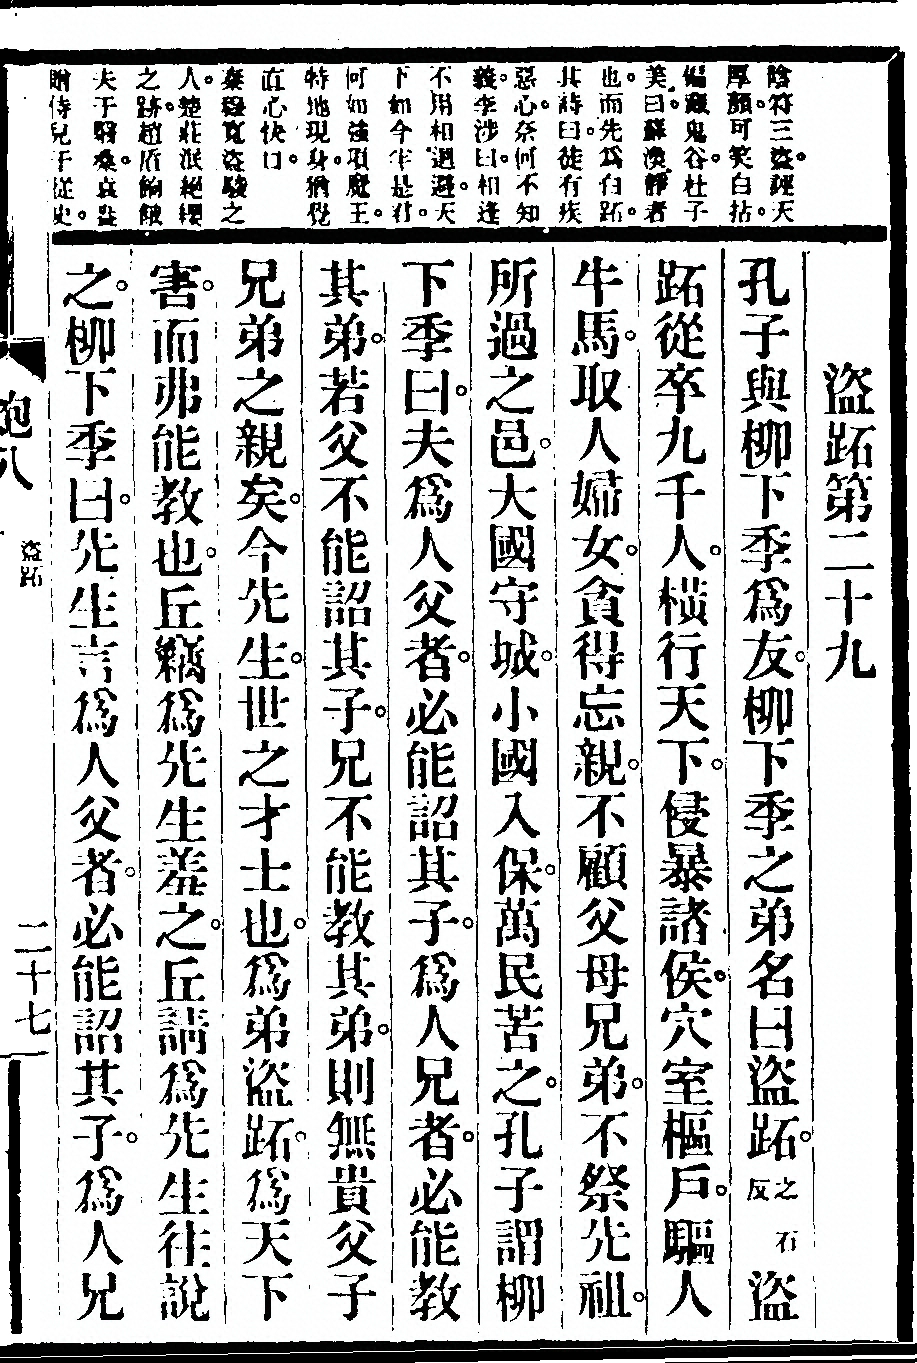 陰符三盜誣天
厚顏可笑白拈
偏瞞鬼谷杜子
美曰蘇渙靜者
也而先為白跖
其詩曰徒有疾
惡心奈何不知
義李涉曰相逢
不用相迴避天
下如今半是君
何如強項魔王
特地現身猶覺
直心快口
秦穆寬盜駿之
人楚莊泯絕纓
之跡趙盾餉餓
夫于翳桑袁盎
贈侍兒于從史
盜跖第二十九
孔子與柳下季為友柳下季之弟名曰盜跖之石反盜
跖從卒九千人橫行天下侵暴諸侯穴室樞戶驅人
牛馬取人婦女貪得忘親不顧父母兄弟不祭先祖
所過之邑大國守城小國入保萬民苦之孔子謂柳
下季曰夫為人父者必能詔其子為人兄者必能教
其弟若父不能詔其子兄不能教其弟則無貴父子
兄弟之親矣今先生世之才士也為弟盜跖為天下
害而弗能教也丘竊為先生羞之丘請為先生往說
之柳下季曰先生言為人父者必能詔其子為人兄
炮八
盜跖
二十七